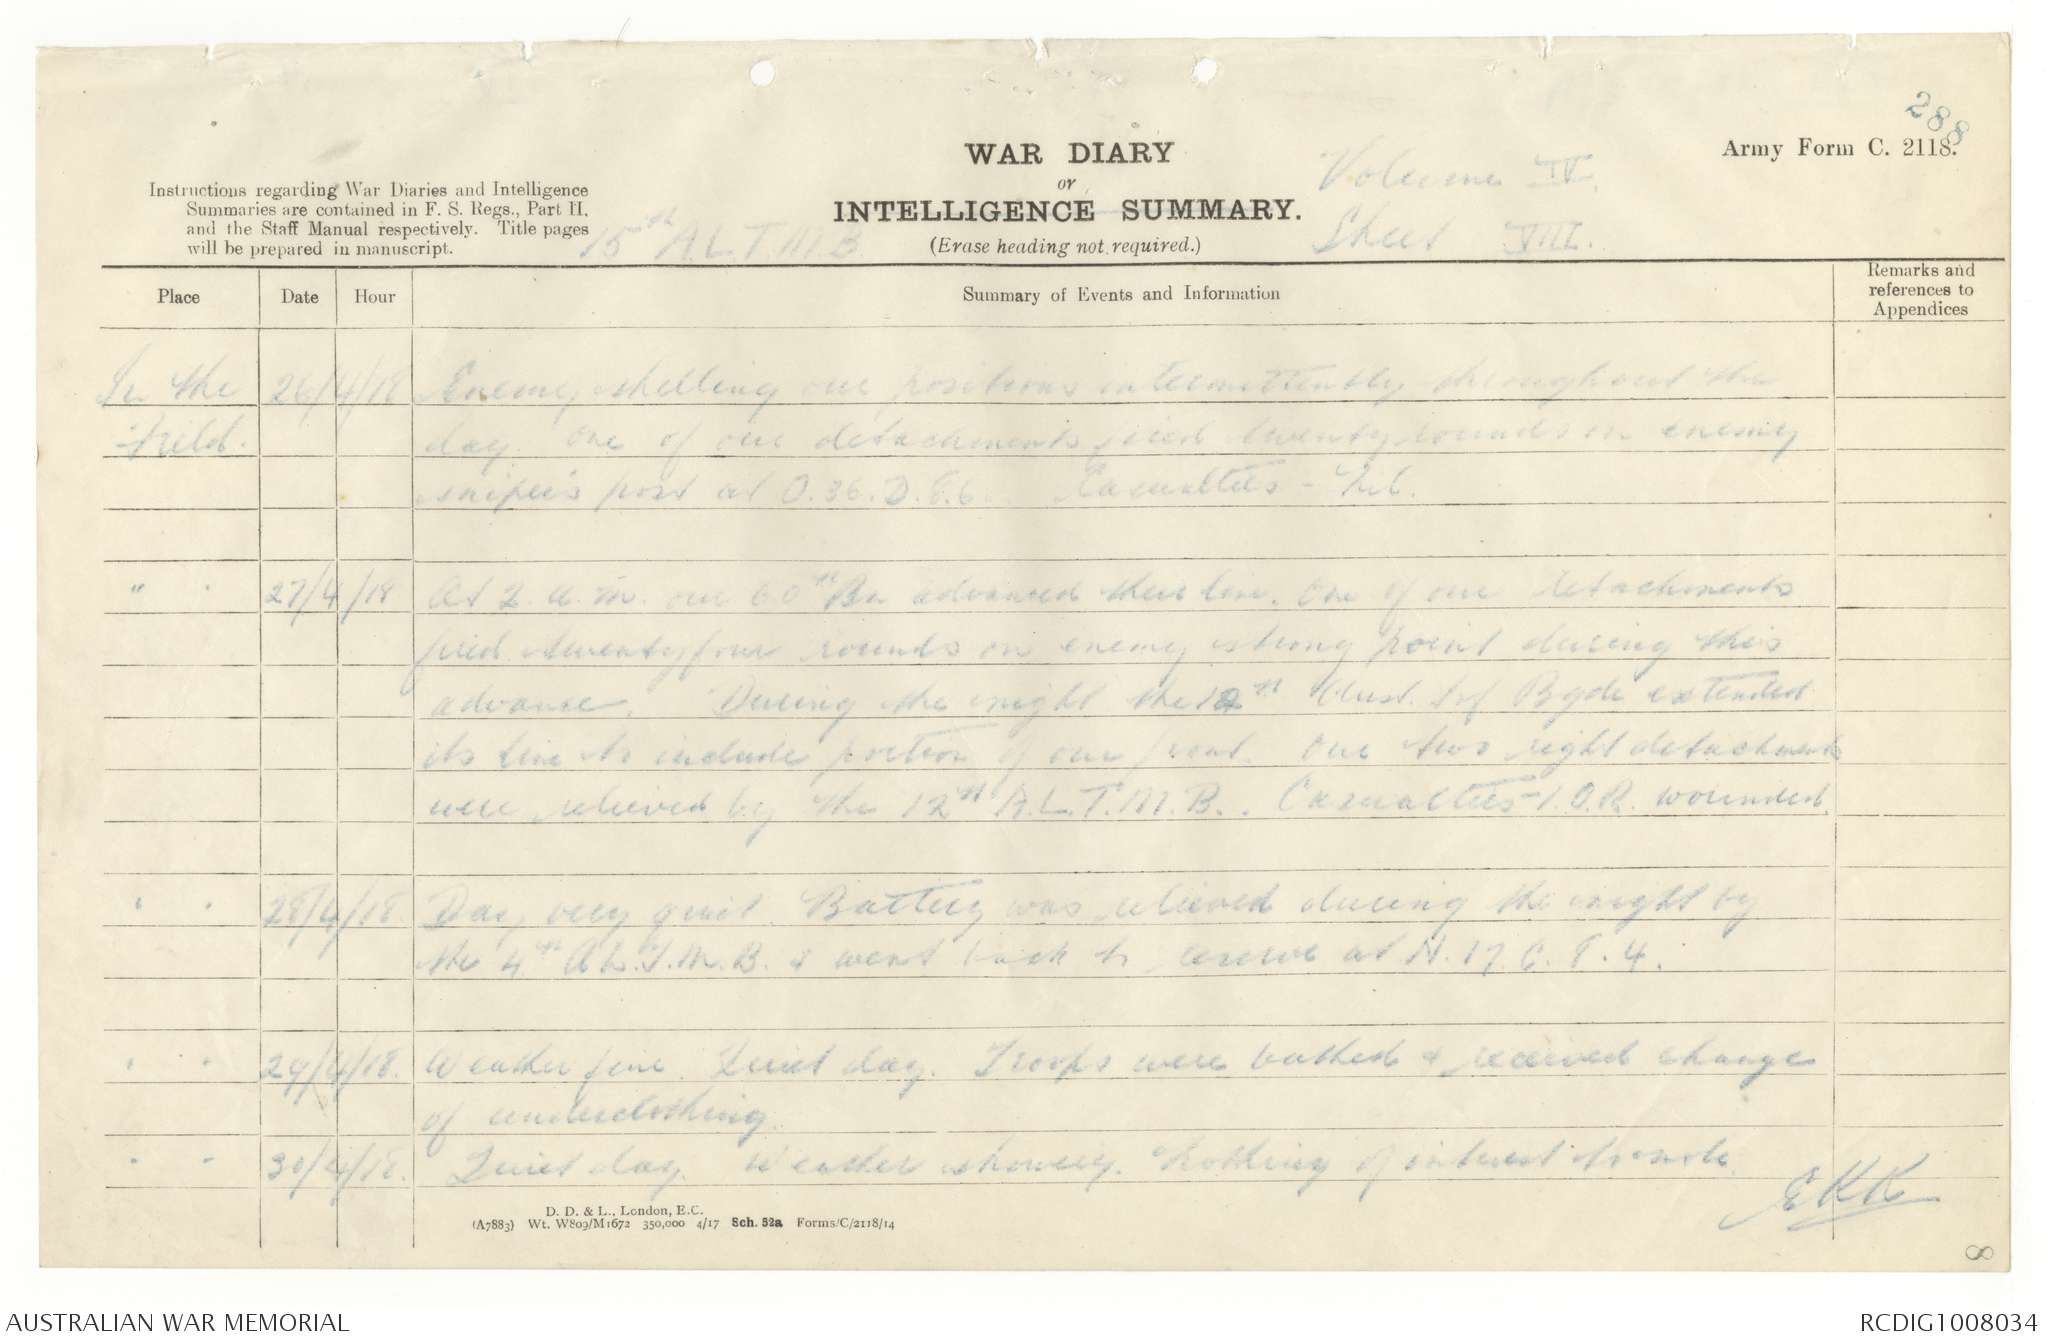 288
Army Form C. 2118.
WAR DIARY
or
INTELLIGENCE SUMMARY.
(Erase heading not required.)
Volume IV.
Sheet VIII.
15th A.L.T.M.B.
Instructions regarding War Diaries and Intelligence
Summaries are contained in F. S. Regs., Part II.
and the Staff Manual respectively. Title pages
will be prepared in manuscript.
Place Date Hour Summary of Events and Information Remarks and references to Appendices
In the 26/4/18 Enemy shelling our positions intermittently throughout the
Field. day. One of our detachments fired twenty rounds on enemy
sniper's post at O.36.D.8.6. Casualties - Nil.
" " 27/4/18 At 2.a.m. our 60th Bn advanced their line. One of our detachments
fired twentyfour rounds on enemy strong point during this
advance. During the night the 12th Aust. Inf Bgde extended
its line to include portion of our front. Our two right detachments
were relieved by the 12th A.L.T.M.B.. Casualties - 1.O.R. wounded.
" " 28/4/18. Day very quiet. Battery was relieved during the night by
the 4th A.L.T.M.B. & went back to reserve at N.17.C.8.4.
" " 29/4/18. Weather fine. Quiet day. Troops were bathed & received change
of underclothing.
" " 30/4/18. Quiet day. Weather showery. Nothing of interest to note.
EKK
D. D. & L., London, E.C.
(A7883) Wt. W809/M1672 350,000 4/17 Sch. 52a Forms/C/2118/14
8
AUSTRALIAN WAR MEMORIAL
RCDIG1008034